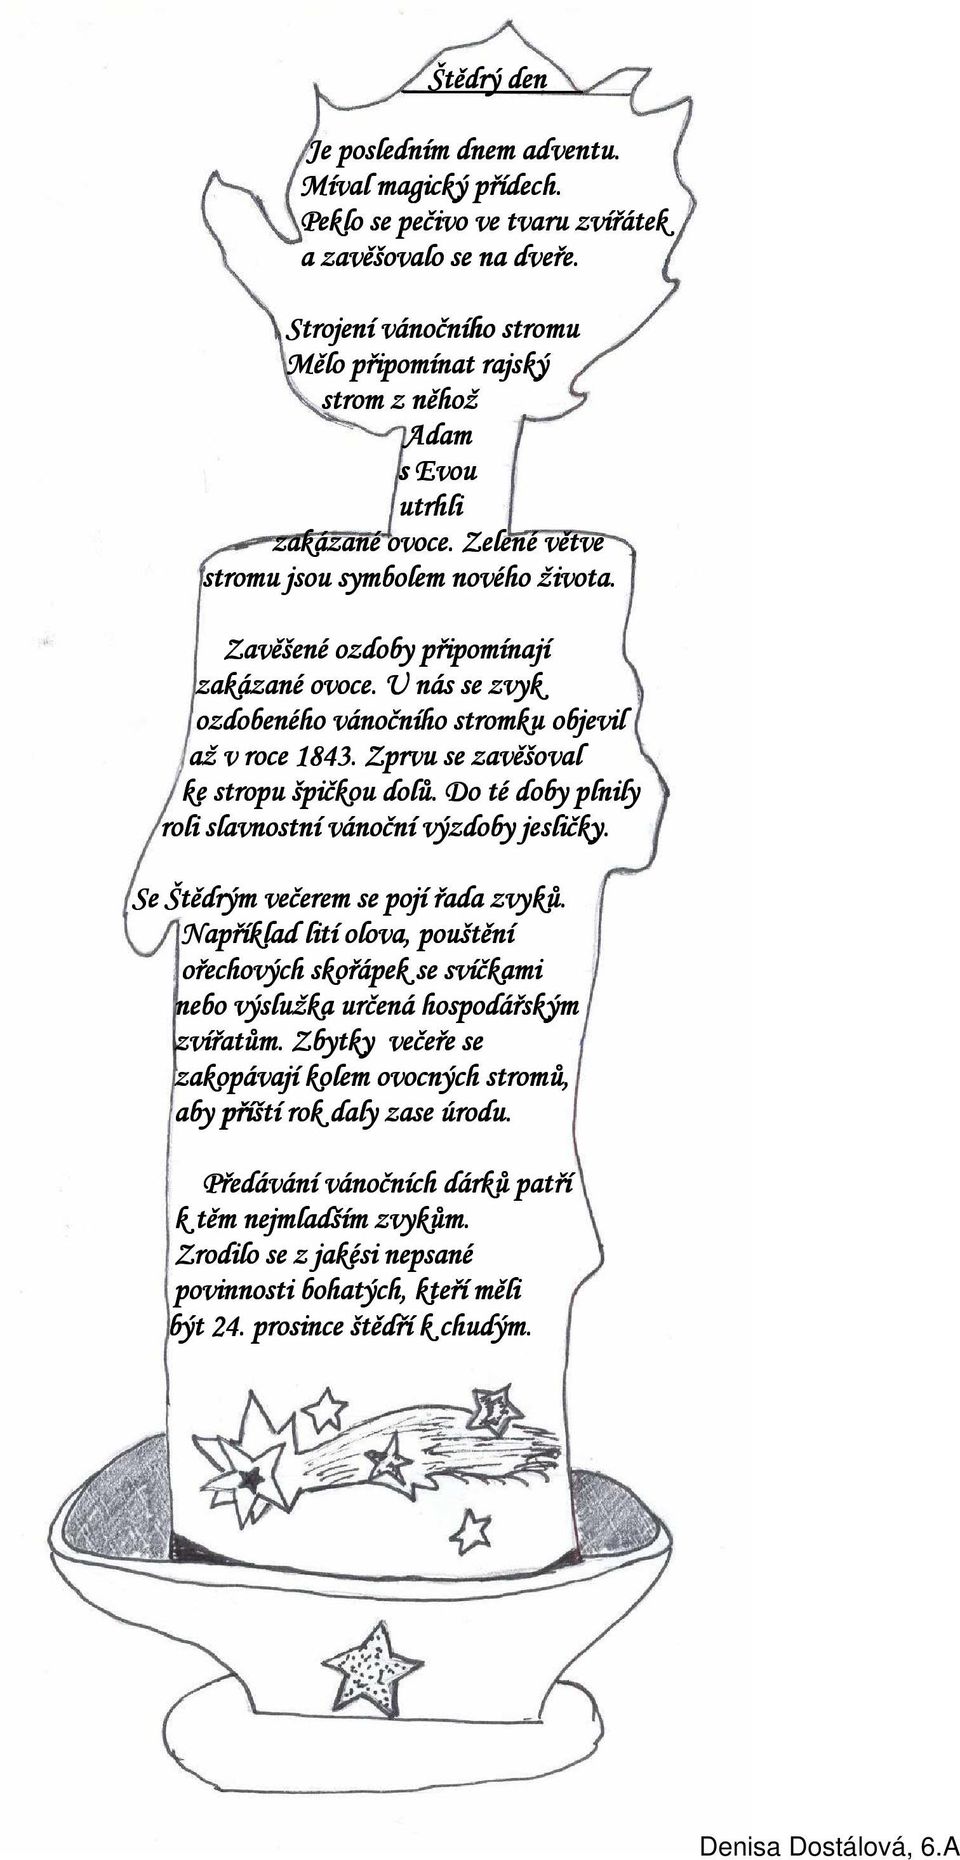 Štědrý den
Je posledním dnem adventu.
Míval magický přídech.
Peklo se pečivo ve tvaru zvířátek
a zavěšovalo se na dveře.
Strojení vánočního stromu
Mělo připomínat rajský
strom z něhož
Adam
s Evou
utrhli
zakázané ovoce. Zelené větve
stromu jsou symbolem nového života.
Zavěšené ozdoby připomínají
zakázané ovoce. U nás se zvyk
ozdobeného vánočního stromku objevil
až v roce 1843. Zprvu se zavěšoval
ke stropu špičkou dolů. Do té doby plnily
roli slavnostní vánoční výzdoby jesličky.
Se Štědrým večerem se pojí řada zvyků.
Například lití olova, pouštění
ořechových skořápek se svíčkami
nebo výslužka určená hospodářským
zvířatům. Zbytky večeře se
zakopávají kolem ovocných stromů,
aby příští rok daly zase úrodu.
Předávání vánočních dárků patří
k těm nejmladším zvykům.
Zrodilo se z jakési nepsané
povinnosti bohatých, kteří měli
být 24. prosince štědří k chudým.
Denisa Dostálová, 6.A